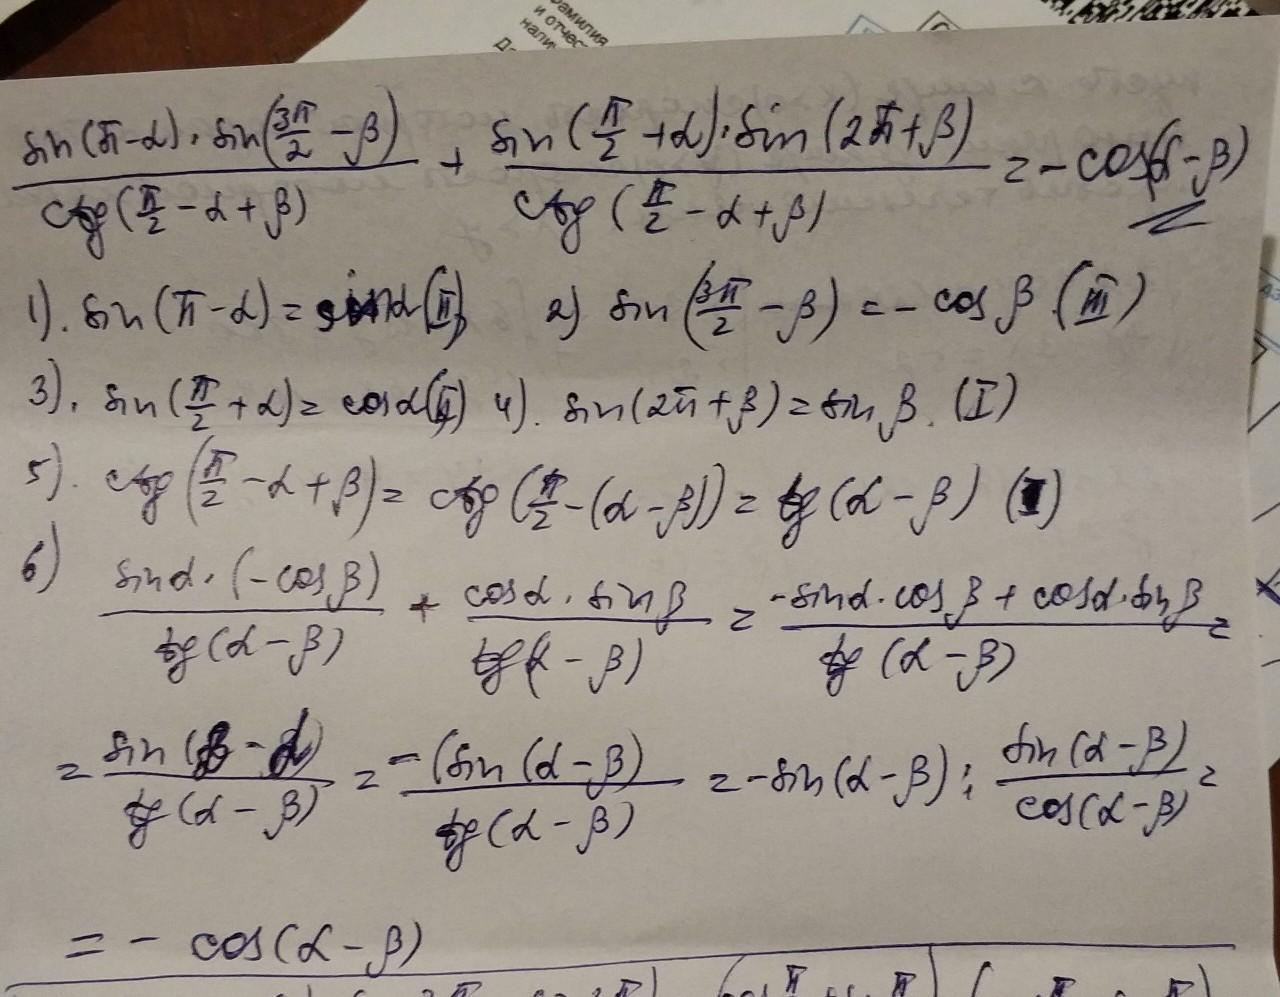 амилия
и отчес
нали
sin(π-α)·sin(3π/2 - β) / ctg(π/2 - α + β) + sin(π/2 + α)·sin(2π+β) / ctg(π/2 - α + β) = - cos(α-β)
1). sin(π-α) = sinα (II) 2) sin(3π/2 - β) = - cos β (III)
3). sin(π/2 + α) = cosα (II) 4). sin(2π+β) = sin β. (I)
5). ctg(π/2 - α + β) = ctg(π/2 - (α - β)) = tg(α - β) (I)
6) sinα·(-cosβ) / tg(α-β) + cosα·sinβ / tg(α-β) = -sinα·cosβ + cosα·sinβ / tg(α-β) =
= sin(β-α) / tg(α-β) = -(sin(α-β) / tg(α-β) = -sin(α-β) : sin(α-β) / cos(α-β) =
= - cos(α-β)